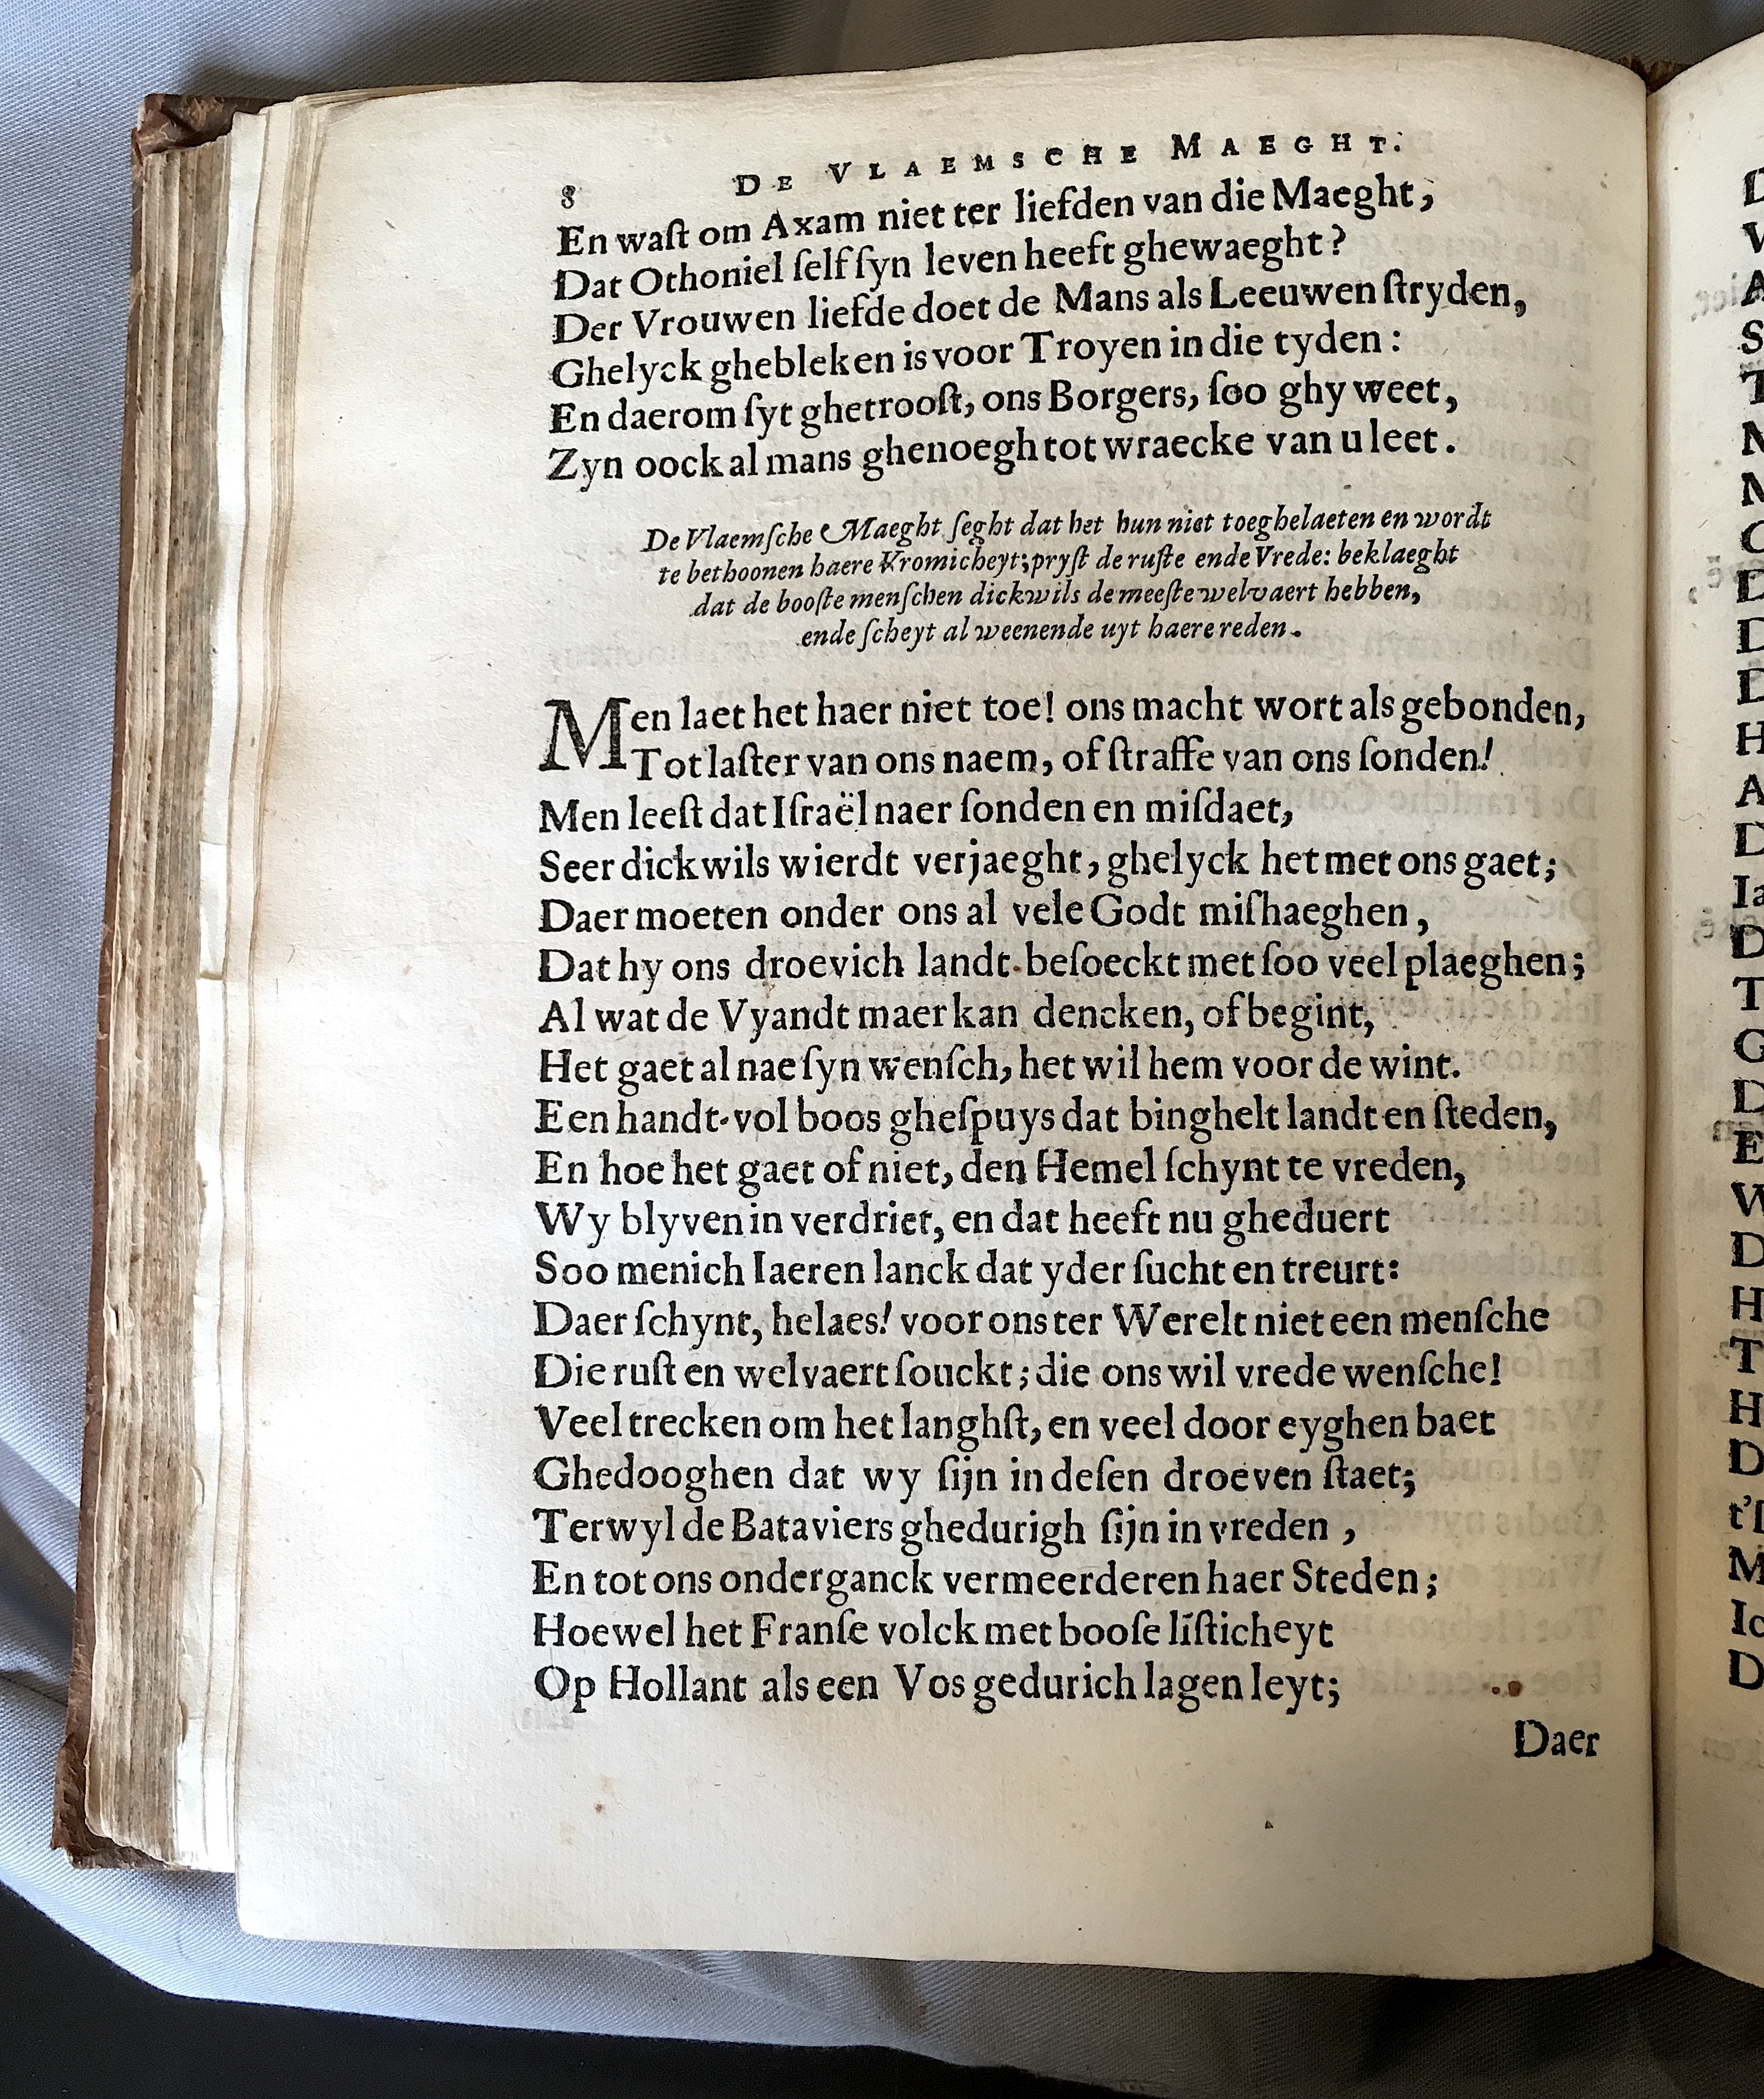 8 DE VLAEMSCHE MAEGHT.
En waſt om Axam niet ter liefden van die Maeght,
Dat Othoniel ſelf ſyn leven heeft ghewaeght?
Der Vrouwen liefde doet de Mans als Leeuwen ſtryden,
Ghelyck ghebleken is voor Troyen in die tyden:
En daerom ſyt ghetrooſt, ons Borgers, ſoo ghy weet,
Zyn oock al mans ghenoegh tot wraecke van u leet.
De Vlaemſche Maeght ſeght dat het hun niet toeghelaeten en wordt
te bethoonen haere Vromicheyt; pryſt de ruſte ende Vrede: beklaeght
dat de booſte menſchen dickwils de meeſte welvaert hebben,
ende ſcheyt al weenende uyt haere reden.
Men laet het haer niet toe! ons macht wort als gebonden,
Tot laſter van ons naem, of ſtraffe van ons ſonden!
Men leeſt dat Iſraël naer ſonden en miſdaet,
Seer dickwils wierdt verjaeght, ghelyck het met ons gaet;
Daer moeten onder ons al vele Godt miſhaeghen,
Dat hy ons droevich landt beſoeckt met ſoo veel plaeghen;
Al wat de Vyandt maer kan dencken, of begint,
Het gaet al nae ſyn wenſch, het wil hem voor de wint.
Een handt-vol boos gheſpuys dat binghelt landt en ſteden,
En hoe het gaet of niet, den Hemel ſchynt te vreden,
Wy blyven in verdriet, en dat heeft nu gheduert
Soo menich Iaeren lanck dat yder ſucht en treurt:
Daer ſchynt, helaes! voor ons ter Werelt niet een menſche
Die ruſt en welvaert ſouckt; die ons wil vrede wenſche!
Veel trecken om het langhſt, en veel door eyghen baet
Ghedooghen dat wy ſijn in deſen droeven ſtaet;
Terwyl de Bataviers ghedurigh ſijn in vreden,
En tot ons onderganck vermeerderen haer Steden;
Hoewel het Franſe volck met booſe liſticheyt
Op Hollant als een Vos gedurich lagen leyt;
Daer